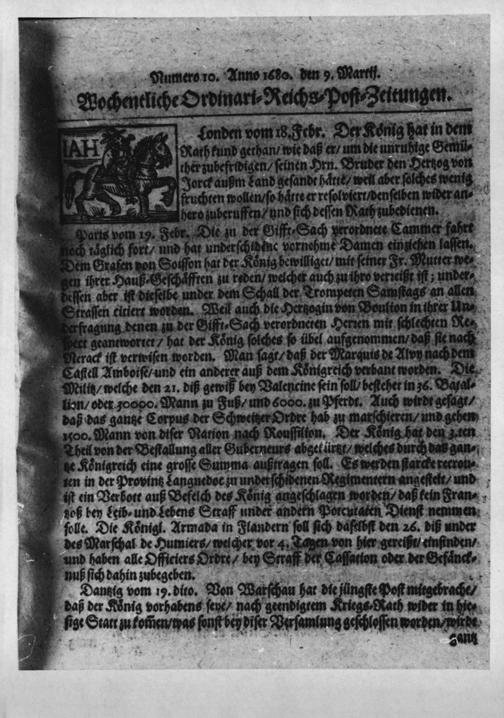 Numero 10. Anno 1680. den 9. Martij.
Wochentliche Ordinari-Reichs-Post-Zeitungen.
IAH
Londen vom 18. Febr. Der König hat in dem
Rath kund gethan/ wie daß er/ um die unruhige Gemü-
ther zubefridigen/ seinen Hrn. Bruder den Hertzog von
Jorck außm Land gesandt hätte/ weil aber solches wenig
fruchten wollen/ so hätte er resolviert/ denselben wider an-
hero zuberuffen/ und sich dessen Rath zubedienen.
Paris vom 19. Febr. Die zu der Gifft-Sach verordnete Cammer fahrt
noch täglich fort/ und hat underschidene vornehme Damen einziehen lassen.
Dem Grafen von Soisson hat der König bewilliget/ mit seiner Fr. Mutter we-
gen ihrer Hauß-Geschäfften zu reden/ welcher auch zu ihro verreißt ist; under-
dessen aber ist dieselbe under dem Schall der Trompeten Samstags an allen
Strassen citiert worden. Weil auch die Hertzogin von Boulion in ihrer Un-
derfragung denen zu der Gifft-Sach verordneten Herren mit schlechten Re-
spect geantwortet/ hat der König solches so übel aufgenommen/ daß sie nach
Nerack ist verwisen worden. Man sagt/ daß der Marquis de Alvy nach dem
Castell Amboise/ und ein anderer auß dem Königreich verbant worden. Die
Militz/ welche den 21. diß gewiß bey Valencine sein soll/ bestehet in 36. Batal-
lion/ oder 30000. Mann zu Fuß/ und 6000. zu Pferdt. Auch wirdt gesagt/
daß das gantze Corpus der Schweitzer Ordre hab zu marschieren/ und gehen
1500. Mann von diser Nation nach Roussilion. Der König hat den 3.ten
Theil von der Bestallung aller Guberneurs abgekürtzt/ welches durch das gan-
tze Königreich eine grosse Summa außtragen soll. Es werden starcke recrou-
ten in der Provintz Languedoc zu underschidenen Regimentern angestelt/ und
ist ein Verbott auß Befelch des König angeschlagen worden/ daß kein Fran-
tzoß bey Leib- und Lebens Straff under andern Potentaten Dienst nemmen
solle. Die Königl. Armada in Flandern soll sich daselbst den 26. diß under
des Marschal de Humiers/ welcher vor 4. Tagen von hier gereißt/ einfinden/
und haben alle Officiers Ordre/ bey Straff der Cassation oder der Gefänck-
nuß sich dahin zubegeben.
Dantzig vom 19. dito. Von Warschau hat die jüngste Post mitgebracht/
daß der König vorhabens seye/ nach geendigtem Kriegs-Rath wider in hie-
sige Statt zu kom̃en/ was sonst bey diser Versamlung geschlossen worden/ wirdt
gantz